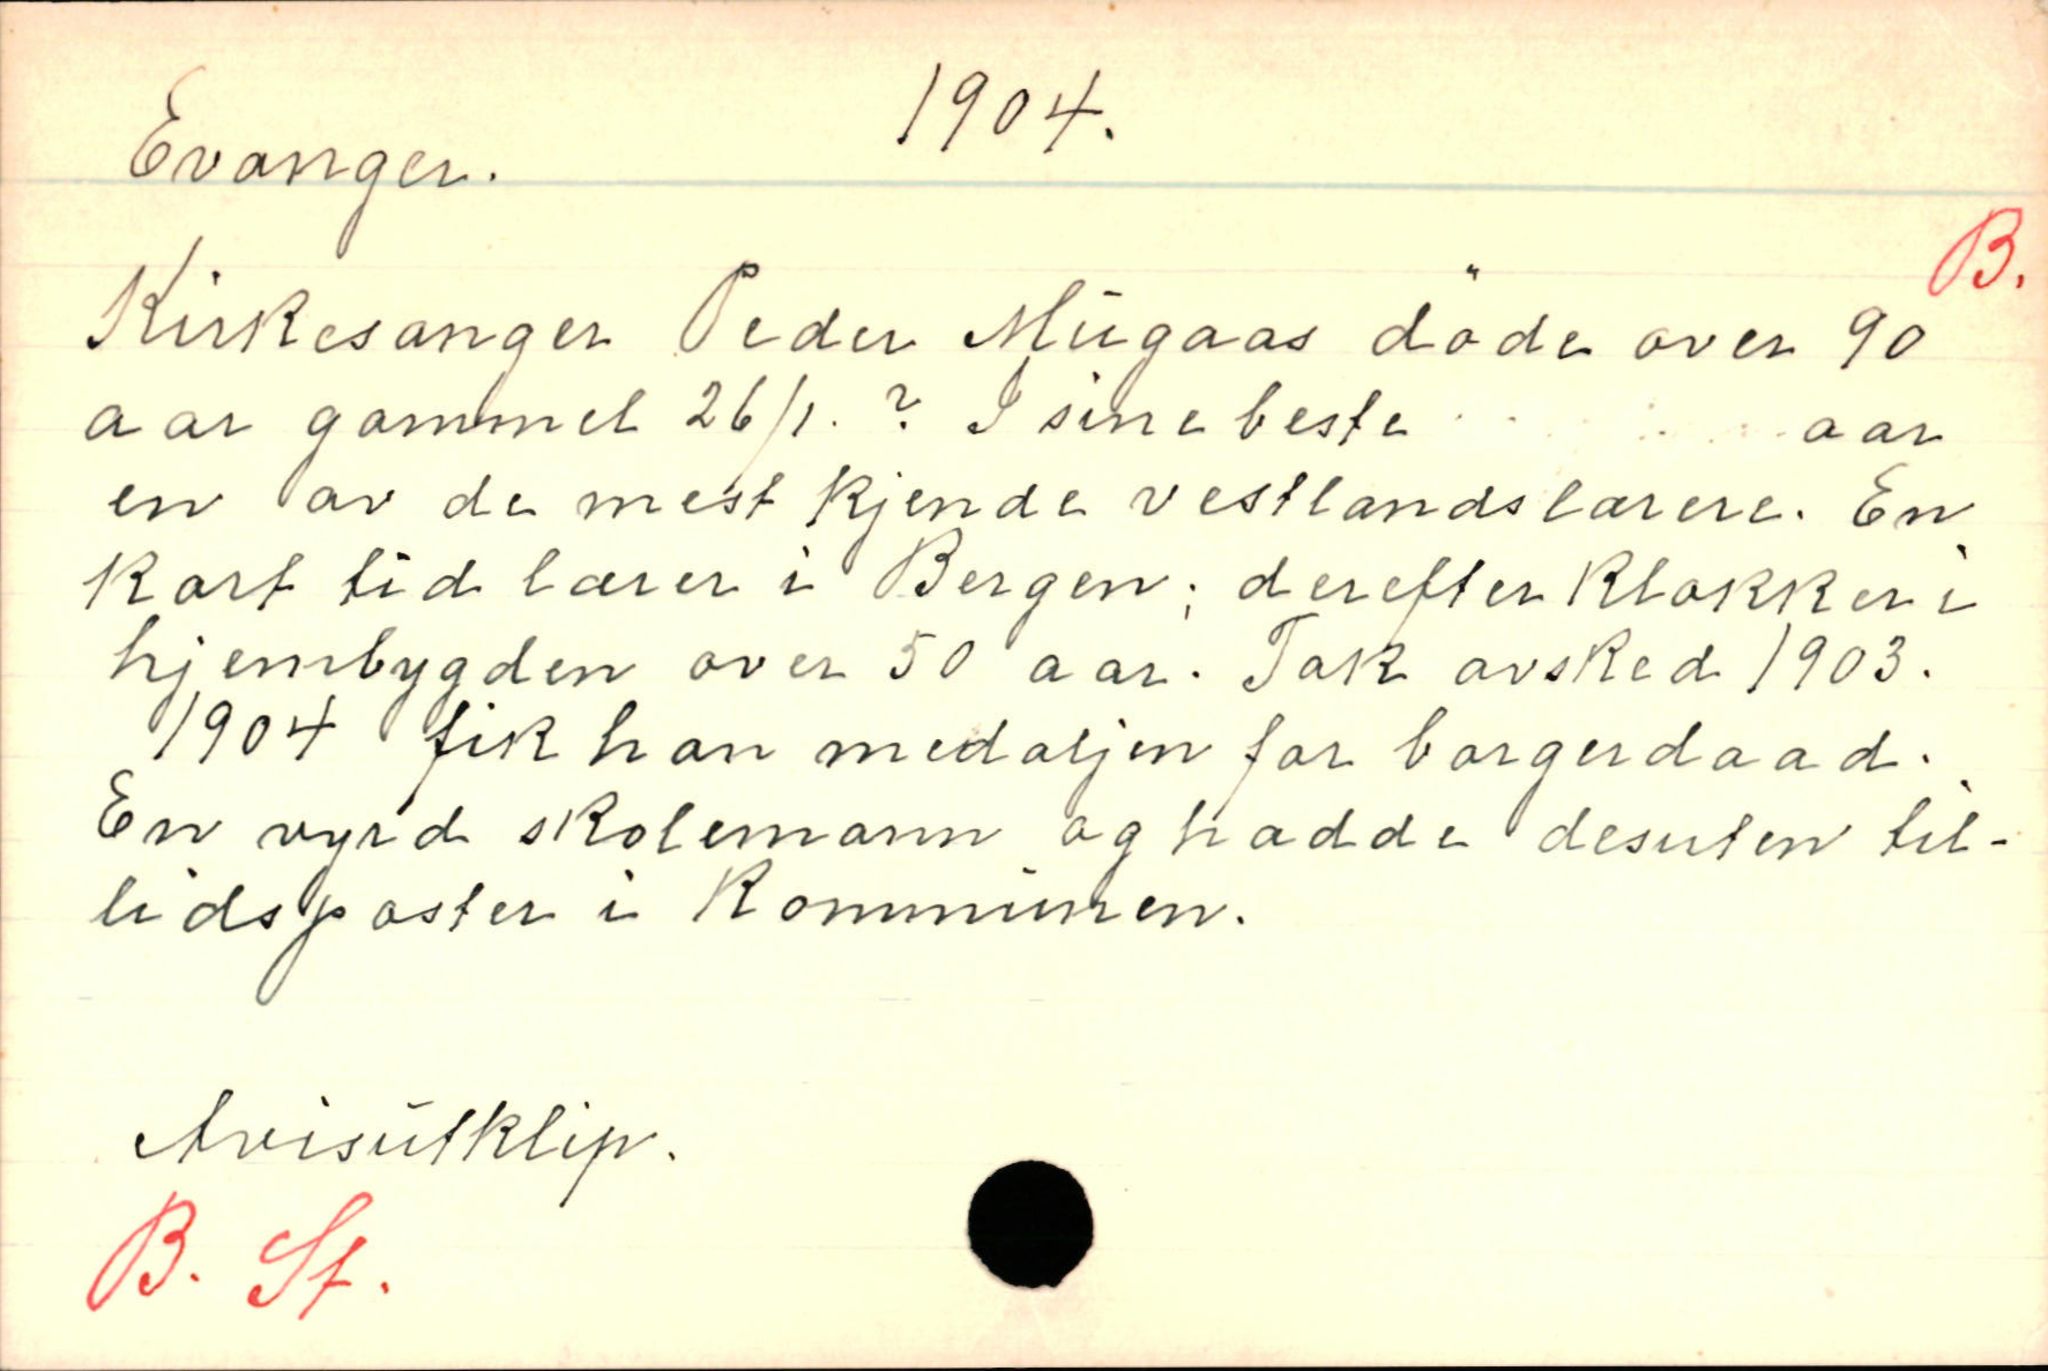 1904.
Evanger.
B.
Kirkesanger Peder Mügaas döde over 90
aar gammel 26/1. ? I sine beste aar
en av de mest kjende vestlandslærere. En
kort tid lærer i Bergen; derefter klokker i
hjembygden over 50 aar. Tok avsked 1903.
1904 fik han medaljen for borgerdaad.
En vyrd skolemann og hadde desuten til-
lidsposter i kommünen.
Avisütklip.
B. St.